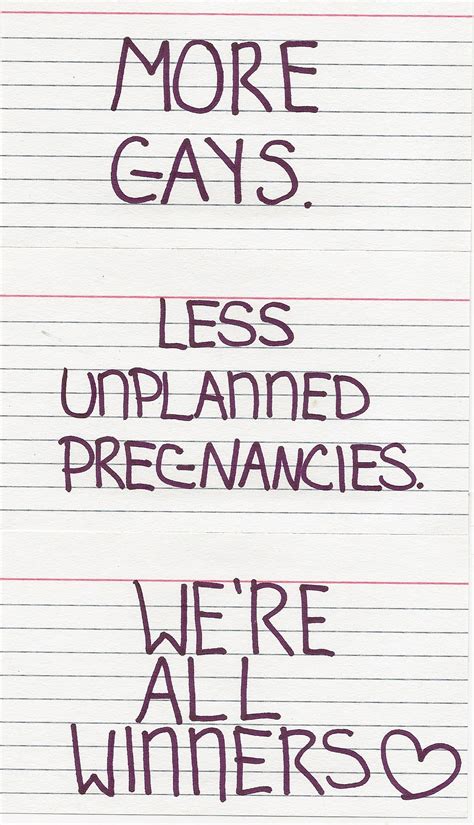 MORE
GAYS.
LESS
UNPLANNED
PREGNANCIES.
WE'RE
ALL
WINNERS♡